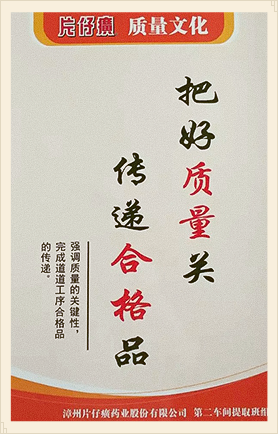 片仔癀 质量文化
把好质量关
传递合格品
强调质量的关键性，
完成道道工序合格品
的传递。
漳州片仔癀药业股份有限公司 第二车间提取班组